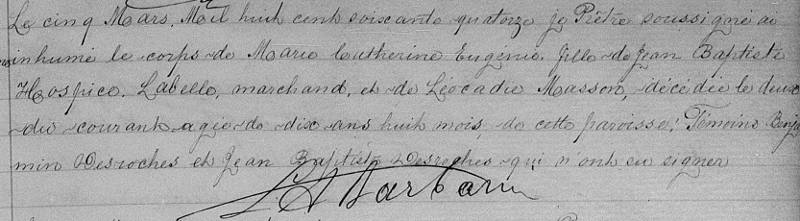 Le cinq Mars. Mil huit cent soixante quatorze je Prêtre soussigné ai
inhumé le corps de Marie Catherine Eugénie. fille de Jean Baptiste
Hospice. Labelle, marchand, et de Léocadie Masson, décédée le deux
du courant agée de dix ans huit mois, de cette paroisse; Témoins Benja
min Desroches et Jean Baptiste Desroches qui n'ont su signer